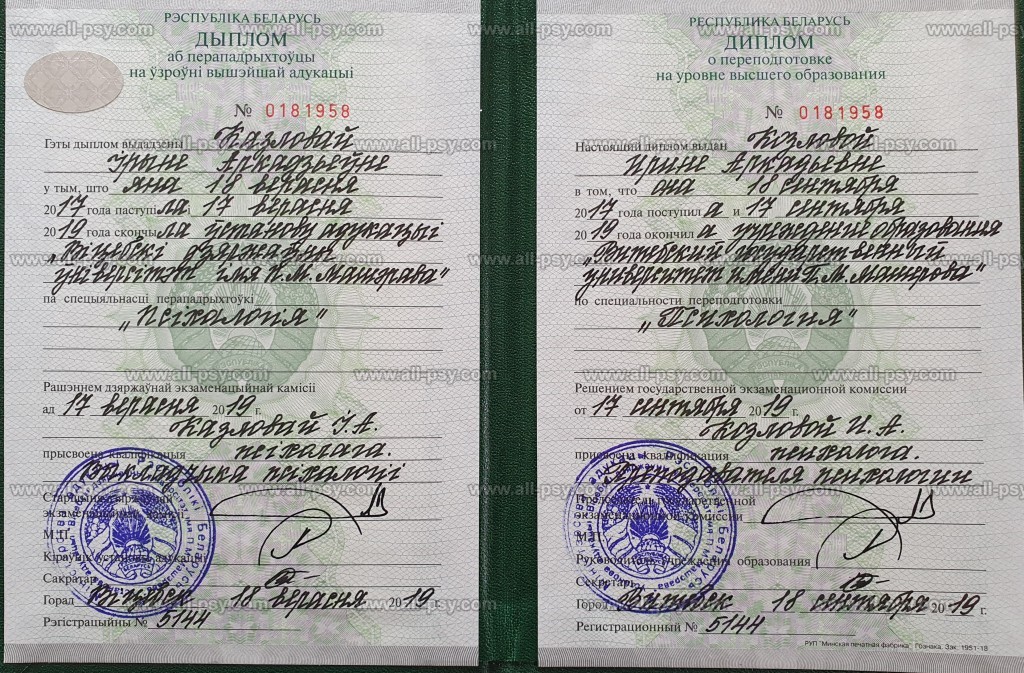 РЭСПУБЛІКА БЕЛАРУСЬ
ДЫПЛОМ
аб перападрыхтоўцы
на ўзроўні вышэйшай адукацыі
№ 0181958
Гэты дыплом выдадзены Казловай
Ірыне Аркадзьеўне
у тым, што яна 18 верасня
2017 года паступіла і 17 верасня
2019 года скончыла ўстанову адукацыі
„Віцебскі дзяржаўны
універсітэт імя П.М. Машэрава"
па спецыяльнасці перападрыхтоўкі
„Псіхалогія"
Рашэннем дзяржаўнай экзаменацыйнай камісіі
ад 17 верасня 2019 г.
Казловай І.А.
прысвоена кваліфікацыя псіхолага.
Выкладчыка псіхалогіі
Старшыня дзяржаўнай
экзаменацыйнай камісіі
М.П.
Кіраўнік установы адукацыі
Сакратар
Горад Віцебск 18 верасня 2019 г.
Рэгістрацыйны № 5144
РЕСПУБЛИКА БЕЛАРУСЬ
ДИПЛОМ
о переподготовке
на уровне высшего образования
№ 0181958
Настоящий диплом выдан Козловой
Ирине Аркадьевне
в том, что она 18 сентября
2017 года поступила и 17 сентября
2019 года окончила учреждение образования
„Витебский государственный
университет имени П.М. Машерова"
по специальности переподготовки
„Психология"
Решением государственной экзаменационной комиссии
от 17 сентября 2019 г.
Козловой И.А.
присвоена квалификация психолога.
Преподавателя психологии
Председатель государственной
экзаменационной комиссии
М.П.
Руководитель учреждения образования
Секретарь
Город Витебск 18 сентября 2019 г.
Регистрационный № 5144
РУП "Минская печатная фабрика" Гознака. Зак. 1951-18
www.all-psy.com